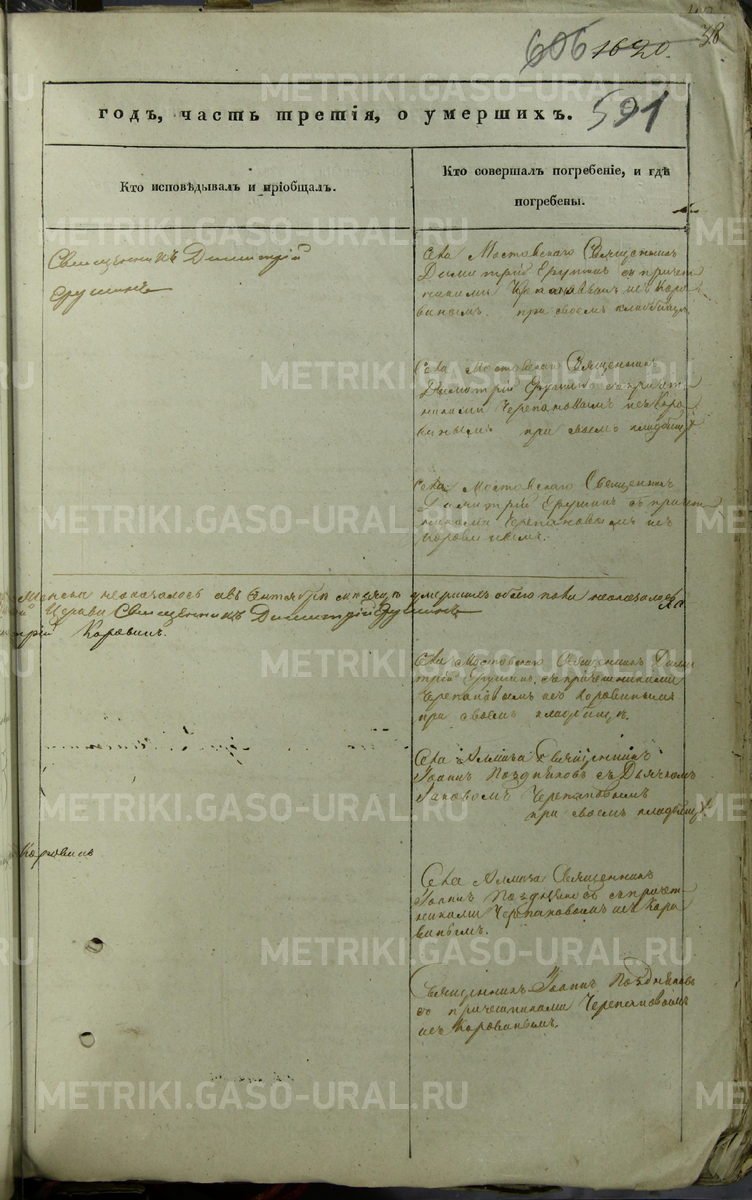 38
606 1620.
годъ, часть третія, о умершихъ. 591
Кто исповѣдывалъ и пріобщалъ.
Кто совершалъ погребеніе, и гдѣ
погребены.
Священникъ Димитрій
Ерушинъ
Села Мостовскаго Священникъ
Димитрій Ерушинъ съ причет
никами Черепановымъ и Коро
винымъ. при своемъ кладбищѣ
Села Мостовскаго Священникъ
Димитрій Ерушинъ съ причет
никами Черепановымъ и Коро
винымъ при своемъ кладбищѣ
Села Мостовскаго Священникъ
Димитрій Ерушинъ съ причет
никами Черепановымъ и
Коровинымъ.
неоказалось а въ Октябрѣ умершихъ обоего пола неоказалось
Церкви Священникъ Димитрій Ерушинъ
Коровинъ.
Села Мостовскаго Священникъ Дими
трій Ерушинъ съ причетниками
Черепановымъ и Коровинымъ
при своемъ кладбищѣ.
Села Аямича Священникъ
Іоаннъ Поздняковъ съ Дьячкомъ
Іаковомъ Черепановымъ
при своемъ кладбищѣ
Коровинъ
Села Аямича Священникъ
Іоаннъ Поздняковъ съ причет
никами Черепановымъ и Коро
винымъ.
Священникъ Іоаннъ Поздняковъ
съ причетниками Черепановымъ
и Коровинымъ.
METRIKI.GASO-URAL.RU